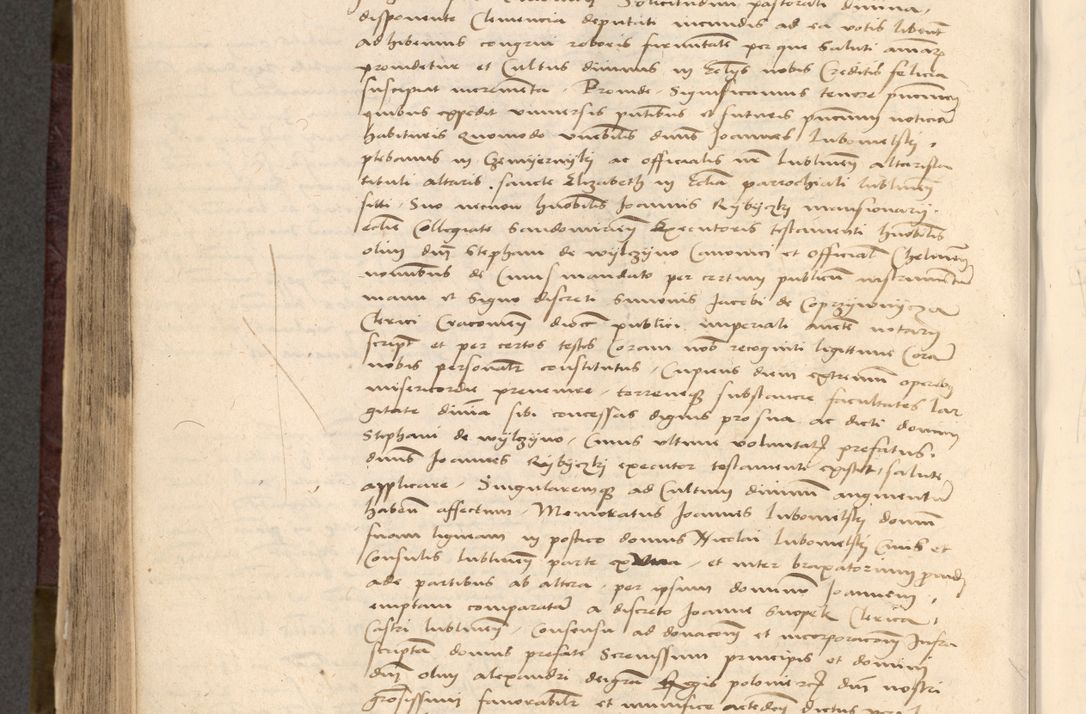 Solicitudini pastorali divina,
disponente Clemencia deputati iucundis ad ea votis libent
adhibemus congrui roboris firmitatem per que saluti animarum
providetur et Cultus divinus in Ecclys nobis Creditis felicia
suscipiat incrementa, Proinde, Significamus tenore presencium
quibus expedit universis presentibus et futuris presencium noticiam
habituris Quomodo venerabilis dnus Joannes Lubomelsky,
plebanus in ac officialis nr Lublinen altarista
tituli altaris sancte Elizabeth in Ecclia parrochiali lublinen
siti, Suo necnon honorabilis Joannis Rybyczky mansionary
ecclie Collegiate Sandomirien Executoris testamenti honorabilis
olim dni Stephani de wylczyno Canonici et Officialis Chelmen
nominibus de Cuius mandato per certum publicum instrumentum
manu et signo discreti Simonis Jacobi de
Clerici Cracovien dioc publici imperiali aucte notary
script et per certos testes Coram nob recogniti legittime Coram
nobis personaliter constitutus, Cupiens diem extremum operibus
misericordie prevenire, terreneque substancie facultates lar
gitate divina sibi concessas dignus pro sua ac dicti domini
Stephani de wylczyno, Cuius ultime voluntatis prefatus
dnus Joannes Rybyczky executor testamenti existit, salute
applicare, Singularemque ad Cultum divinum augmentum
habens affectum, Memoratus Joannes Lubomelsky domum
suam ligneam in postico domus Nicolai Lubomelsky Civis et
Consulis Lublinen parte ex una, et inter braxatorium
ade partibus ab altera, per ipsum dominum Joannem,
emptam comparatam a discreto Joanne Snopek Clerico,
Castri lublinen, Consensu ad donacom et incorporacom Infra
scriptam domus prefate Serenissimi principis et domini
dni olim Alexandri dei gra Regis polonie dni nostri
grosissimi favorabiliter et munifice accedente dictus